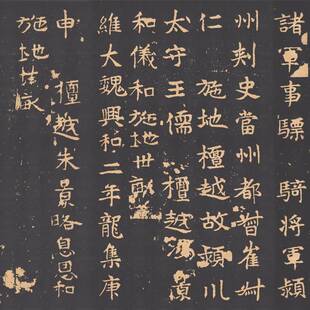 諸軍事驃騎将軍潁
州刺史當州都督崔叔
仁 施地檀越故潁川
太守王儒 檀越
和儀和施地世
維大魏興和二年龍集庚
申 檀越朱景略息思和
施地